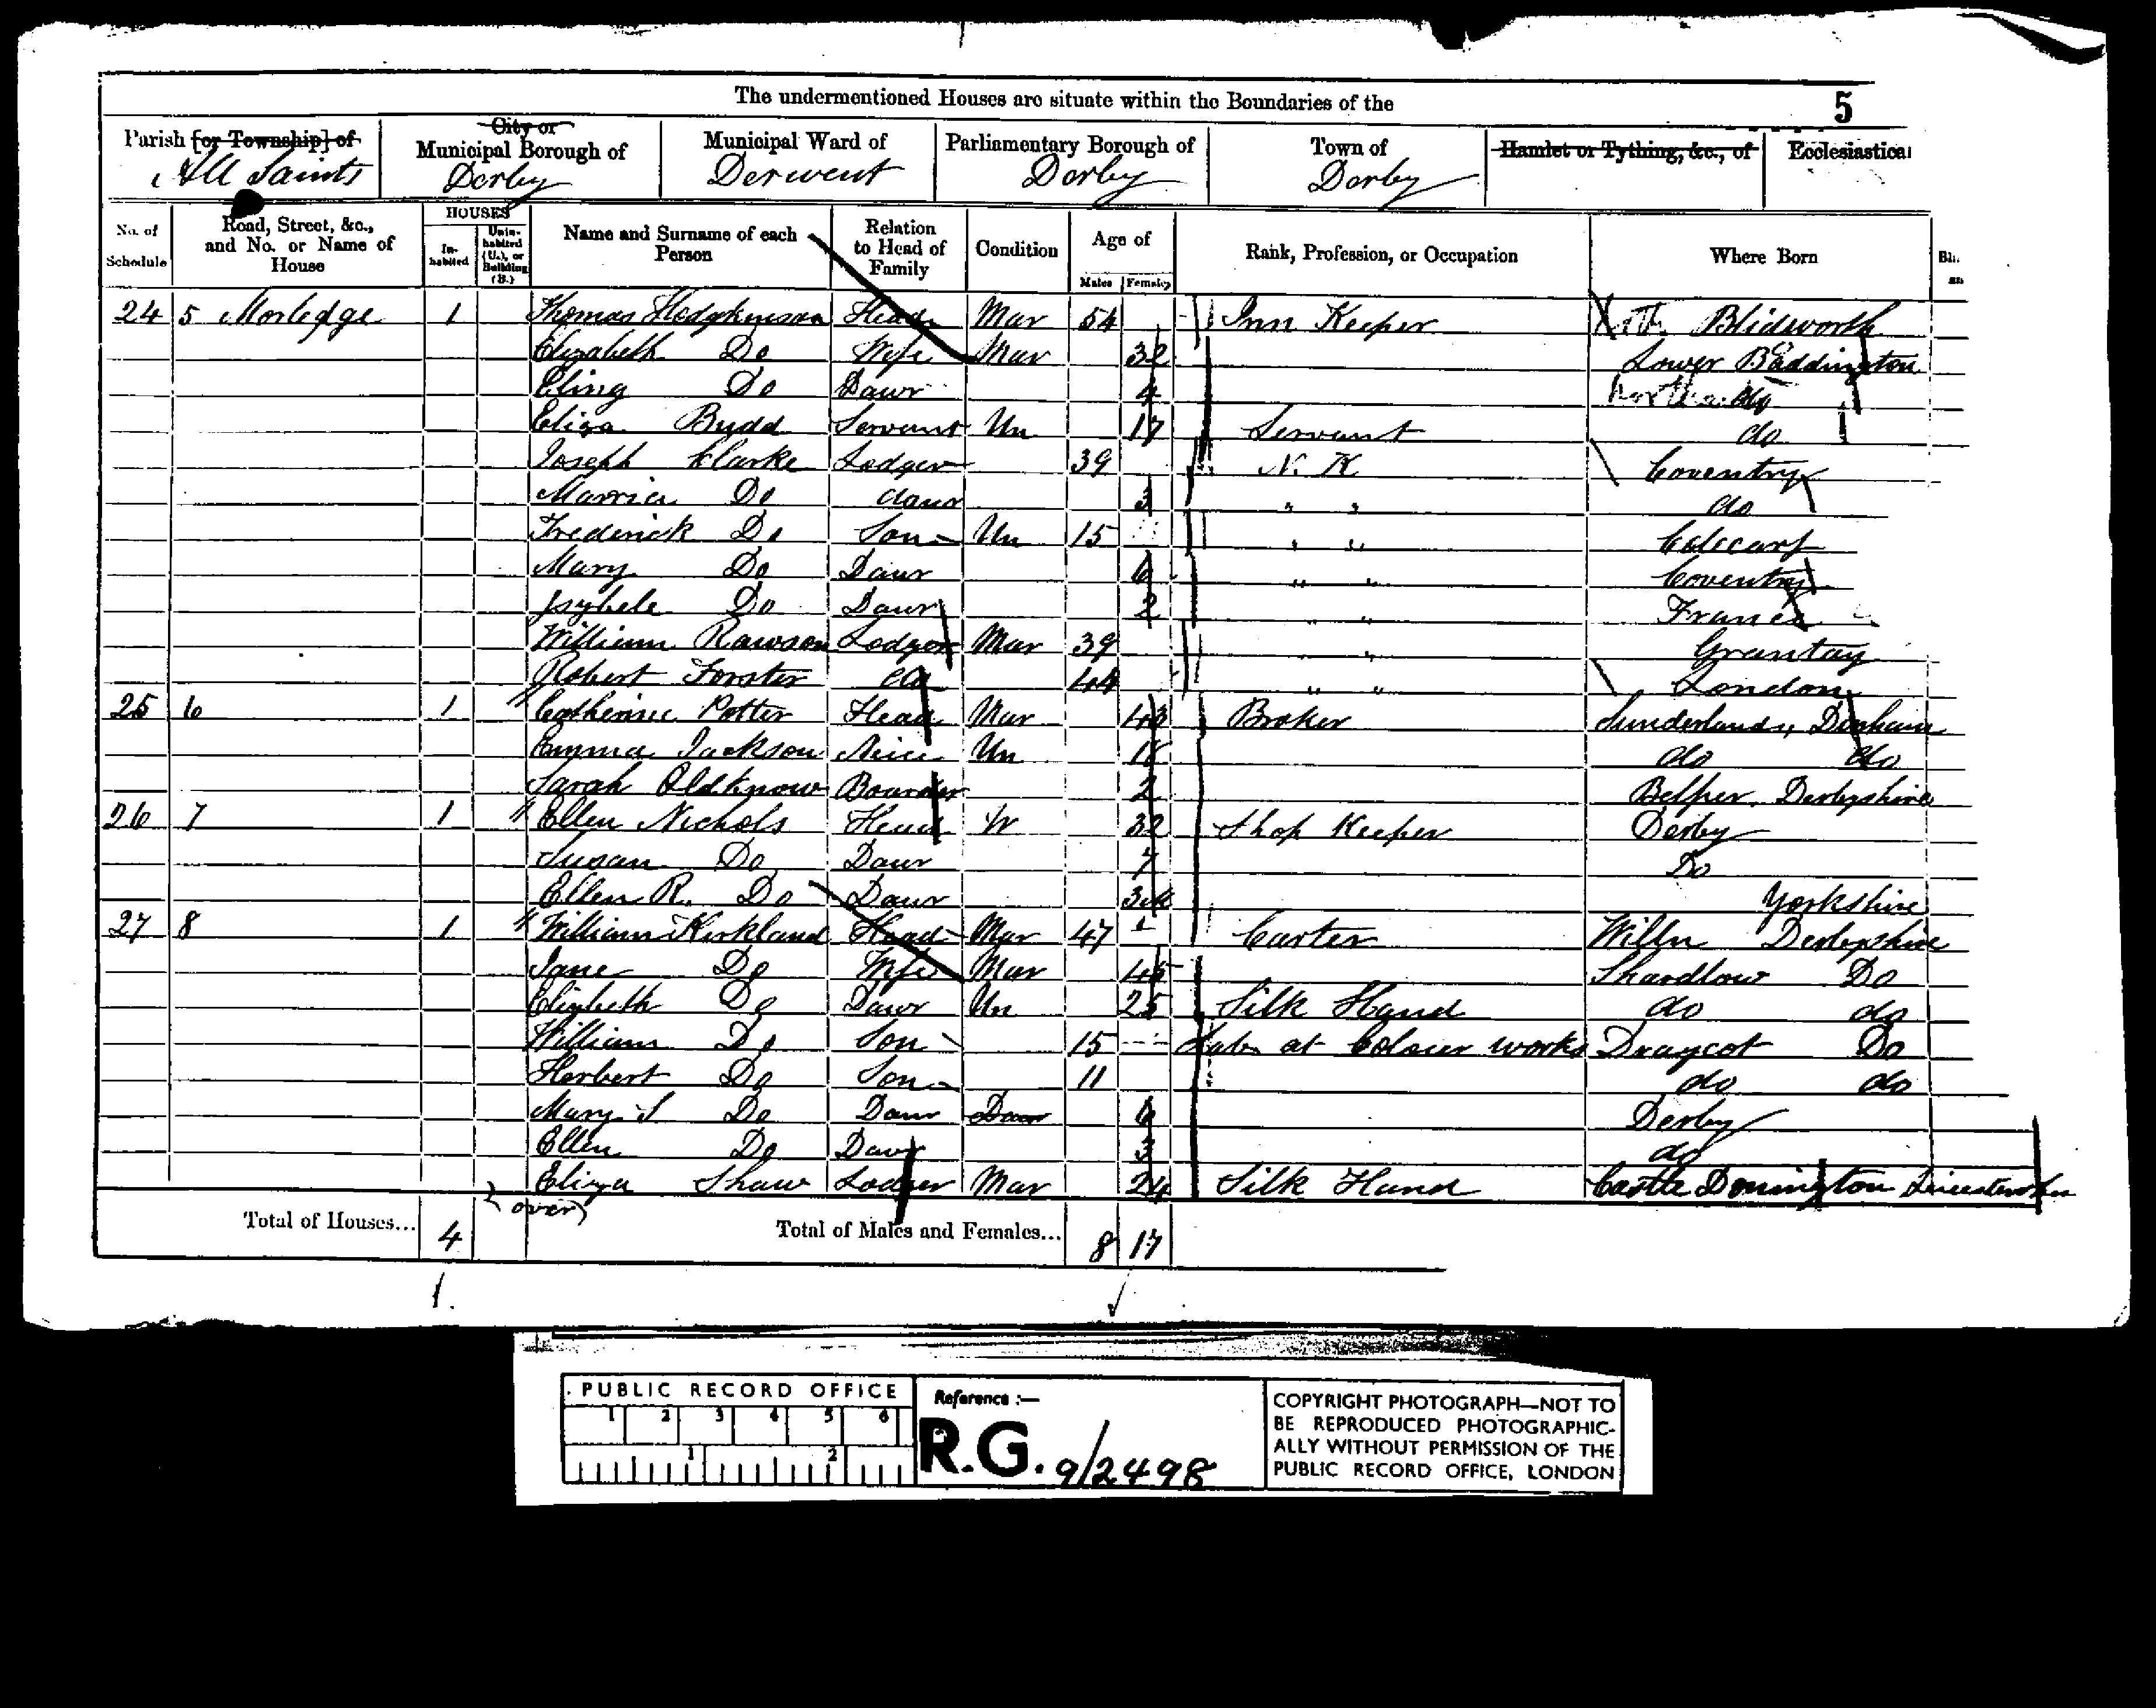 The undermentioned Houses are situate within the Boundaries of the
5
Parish [or Township] of All Saints
City or Municipal Borough of Derby
Municipal Ward of Derwent
Parliamentary Borough of Derby
Town of Derby
Hamlet or Tything, &c., of
Ecclesiastical
No. of Schedule
Road, Street, &c., and No. or Name of House
HOUSES
In-habited
Unin-habited (U.), or Building (B.)
Name and Surname of each Person
Relation to Head of Family
Condition
Age of
Males Females
Rank, Profession, or Occupation
Where Born
24 5 Morledge 1 Thomas Hodgkinson Head Mar 54 Inn Keeper Blidworth
Elizabeth Do Wife Mar 32 Lower Baddington
Eling Do Dawr 4 do
Eliza Budd Servant Un 17 Servant do
Joseph Clarke Lodger 39 N. K Coventry
Do daur 3 " " do
Frederick Do Son Un 15 " "
Mary Do Daur 6 " " Coventry
Do Daur 2 " " France
William Rawson Lodger Mar 39 " " Grantay
Robert Forster do 44 " " London
25 6 1 Catherine Potter Head Mar 43 Broker Sunderland, Durham
Emma Jackson Neice Un 18 do do
Sarah Oldknow Boarder 2 Belper Derbyshire
26 7 1 Ellen Nichols Head W 32 Shop Keeper Derby
Susan Do Daur 7 Do
Ellen R. Do Daur Yorkshire
27 8 1 William Kirkland Head Mar 47 Carter Willn Derbyshire
Jane Do Wife Mar 45 Shardlow Do
Elizbeth Do Dawr Un 25 Silk Hand do do
William Do Son 15 Labr at Colour works Draycot Do
Herbert Do Son 11 do do
Mary S Do Daur Daur 6 Derby
Ellen Do Daur 3 do
Eliza Shaw Lodger Mar 24 Silk Hand Castle Donington Leicestershire
(over)
Total of Houses... 4
Total of Males and Females... 8 17
1.
PUBLIC RECORD OFFICE
1 2 3 4 5 6
1 2
Reference :—
R.G. 9/2498
COPYRIGHT PHOTOGRAPH—NOT TO
BE REPRODUCED PHOTOGRAPHIC-
ALLY WITHOUT PERMISSION OF THE
PUBLIC RECORD OFFICE, LONDON